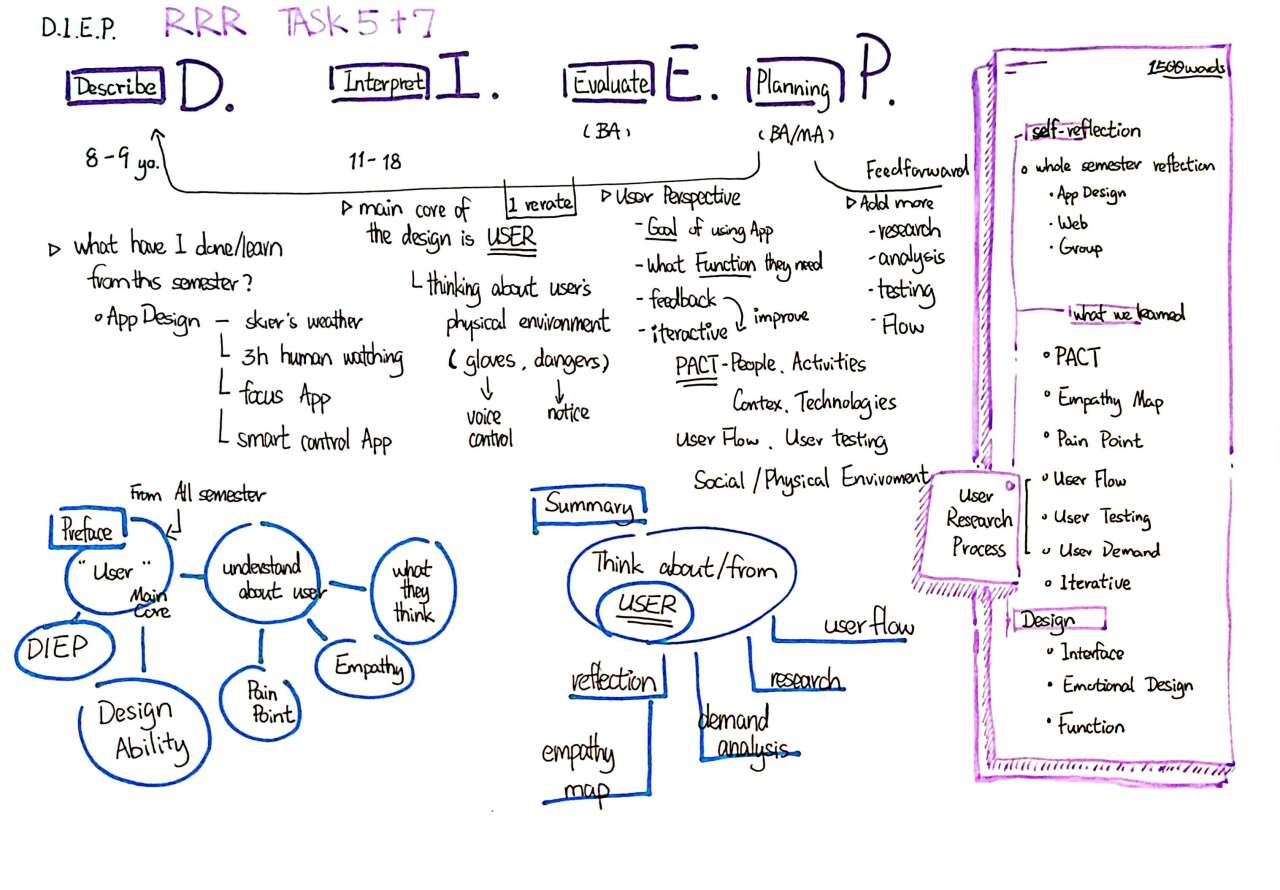 D.I.E.P. RRR TASK 5+7
Describe D.
8-9 yo.
▷ what have I done/learn
from this semester?
◦ App Design — skier's weather
3h human watching
focus App
smart control App
Interpret I.
11-18
▷ main core of
the design is USER
thinking about user's
physical environment
( gloves, dangers)
voice
control
notice
1 rerate
Evaluate E.
(BA)
▷ User Perspective
- Goal of using App
- What Function they need
- feedback
- iteractive
improve
PACT - People, Activities
Contex, Technologies
User Flow, User testing
Social / Physical Enviroment
Planning P.
(BA/MA)
Feedforward
▷ Add more
- research
- analysis
- testing
- Flow
From All semester
Preface
"User"
Main
Core
DIEP
Design
Ability
understand
about user
Pain
Point
Empathy
what
they
think
Summary
Think about/from
USER
user flow
research
reflection
demand
analysis
empathy
map
1500 words
self-reflection
◦ whole semester reflection
• App Design
• Web
• Group
what we learned
◦ PACT
◦ Empathy Map
• Pain Point
User
Research
Process
◦ User Flow
• User Testing
◦ User Demand
◦ Iterative
Design
• Interface
• Emotional Design
• Function